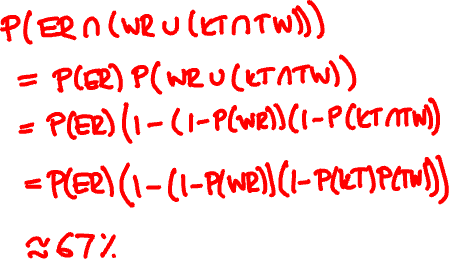 P(ER∩(WR∪(KT∩TW)))
= P(ER) P(WR∪(KT∩TW))
= P(ER)(1-(1-P(WR))(1-P(KT∩TW))
= P(ER)(1-(1-P(WR))(1-P(KT)P(TW)))
≈67%